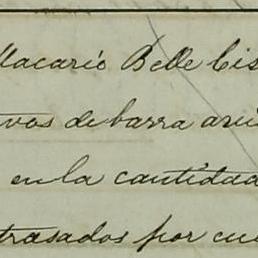 Macario Belle Cis
vos de barra
en la cantidad
trasados por cu